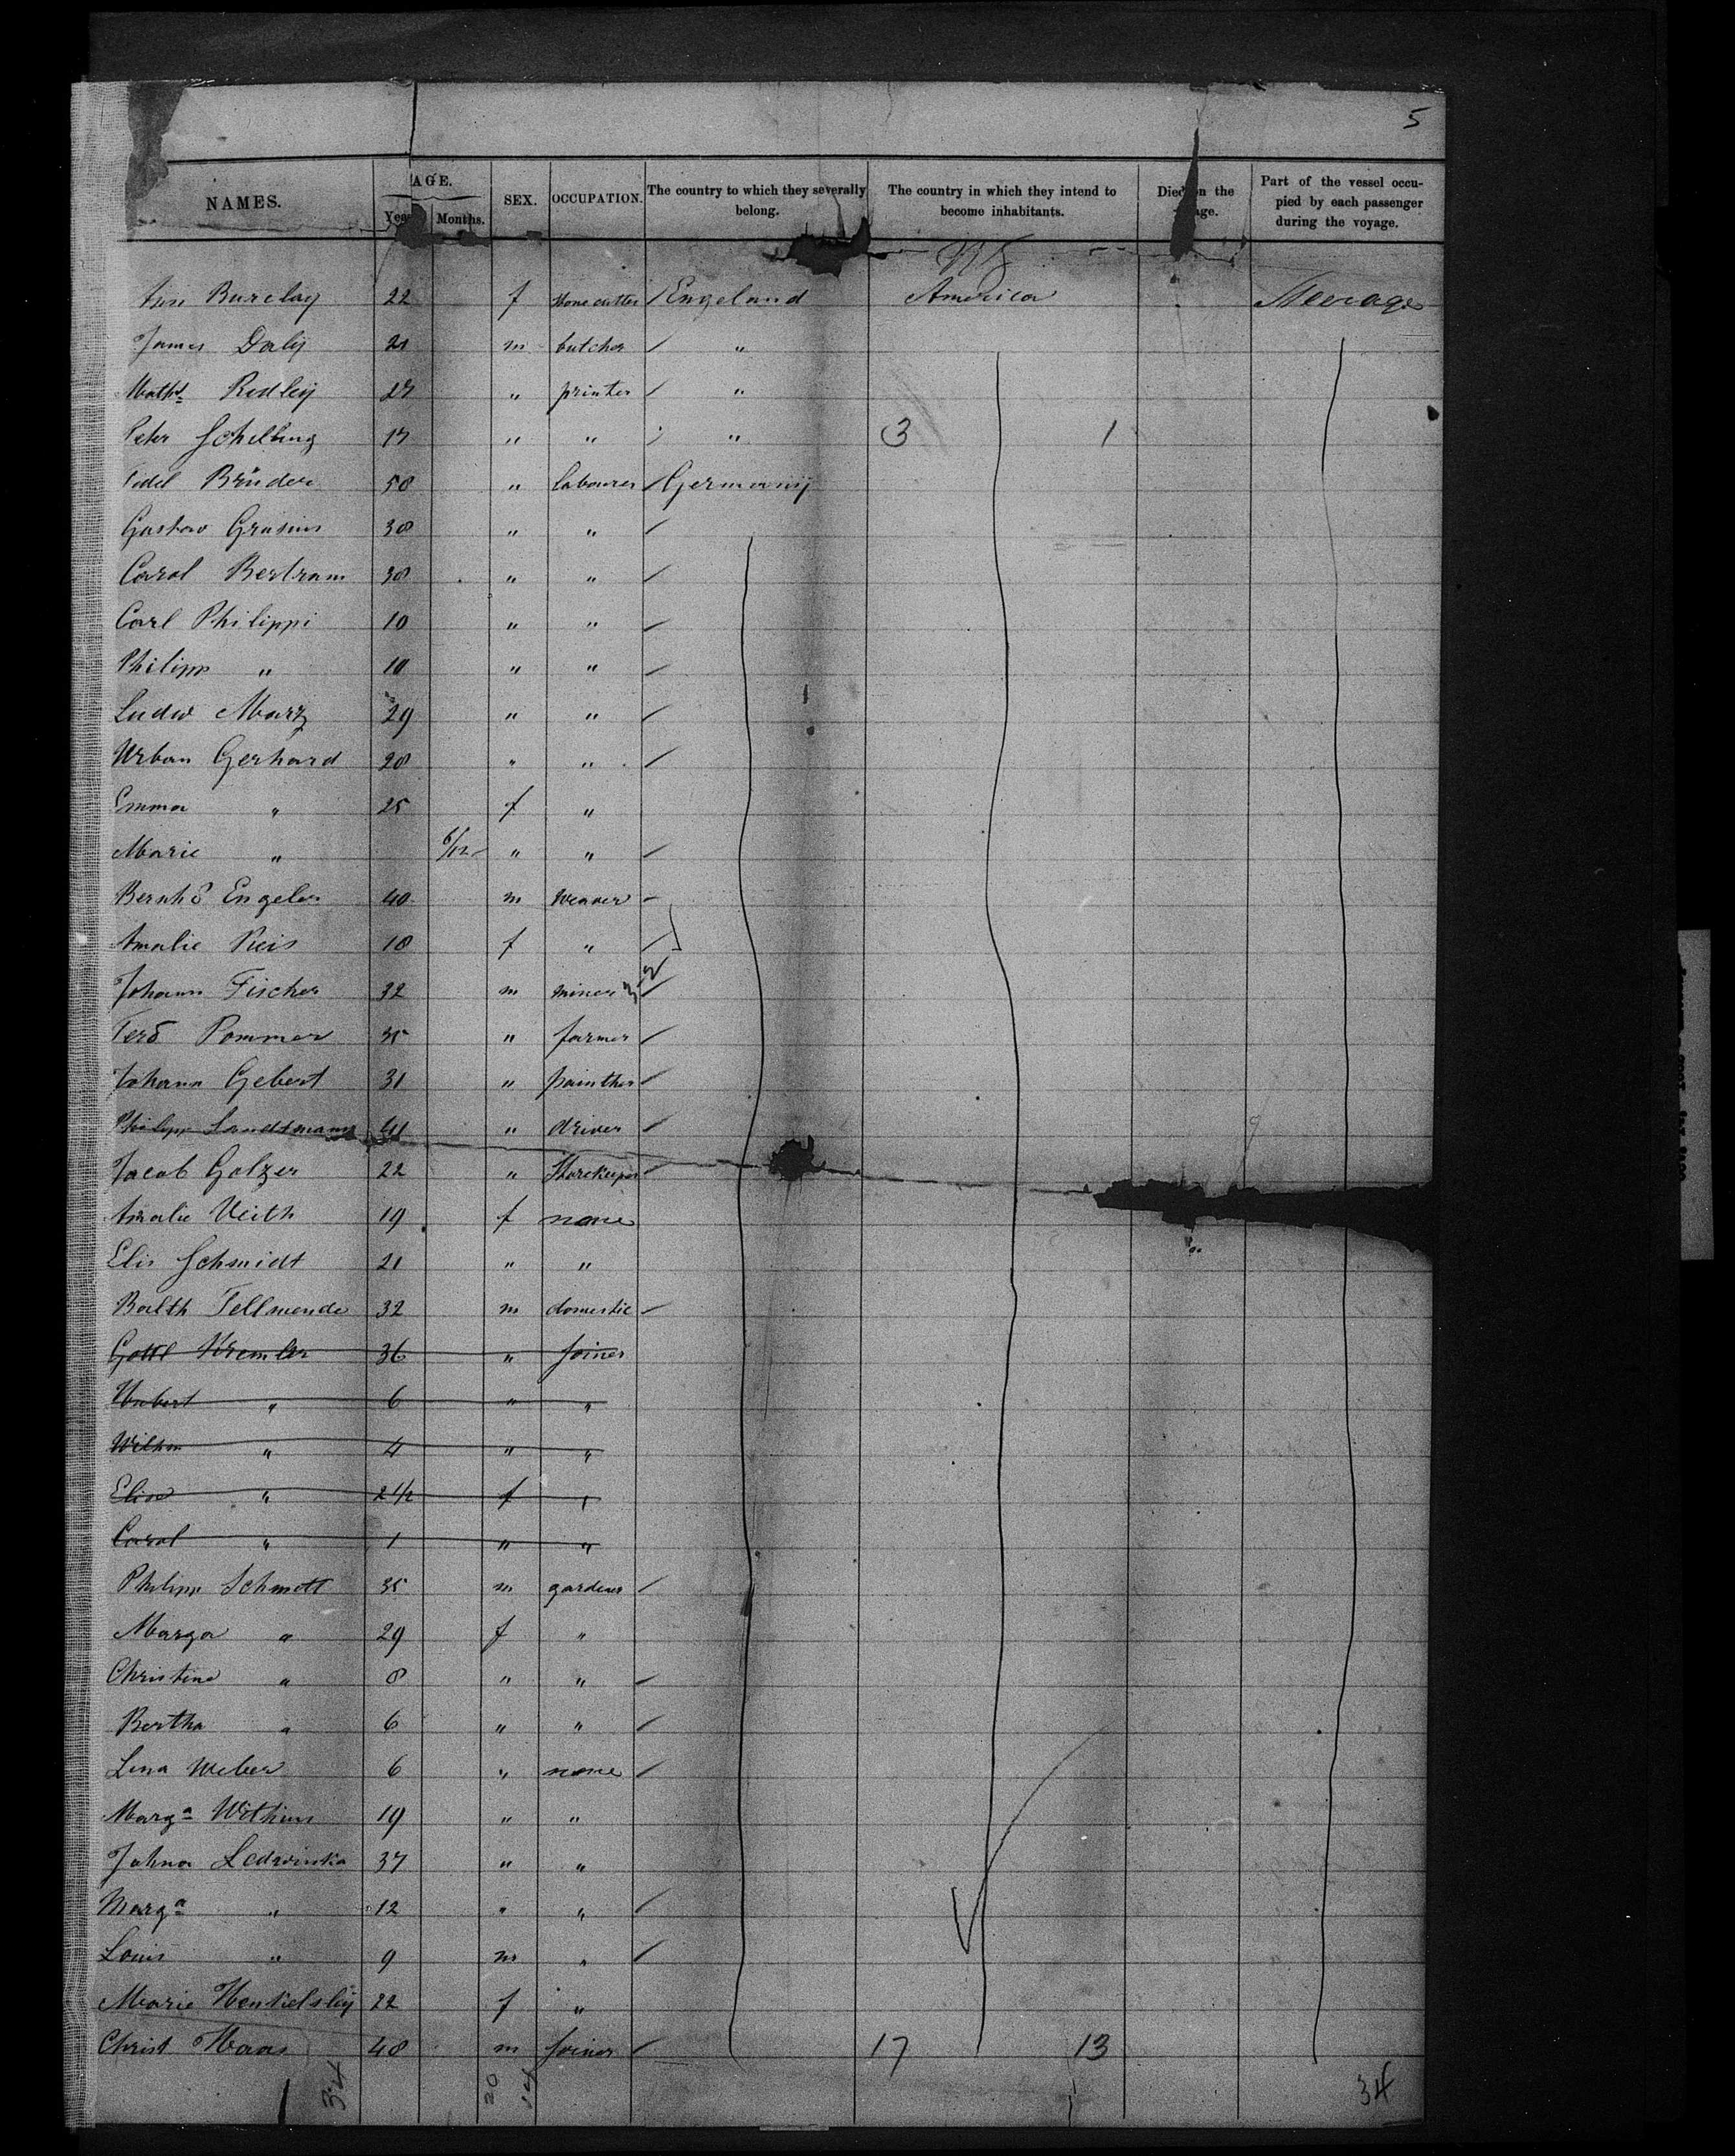 5
NAMES. AGE. SEX. OCCUPATION. The country to which they severally belong. The country in which they intend to become inhabitants. Died on the age. Part of the vessel occupied by each passenger during the voyage.
Years Months.
Barclay 22 f Engeland America Steerage
James Daly 21 m butcher "
Redley 27 " printer "
Peter Schelling 17 " " " 3 1
50 " labourer Germany
Gustav 30 " "
Carol Bertram 30 " "
Carl Philippi 10 " "
Philipp " 10 " "
Ludw Marz 29 " "
Urban Gerhard 20 " "
Emma " 25 f "
Marie " 6/12 " "
Bernhd Engeler 40 m weaver
Amalie Reis 18 f "
Johann Fischer 32 m miner
Ferd Pommer 35 " farmer
Johann Gebert 31 " painther
Philipp Landtmann 41 " driver
Jacob Golzer 22 " Storekeeper
Amalie Veith 19 f none
Elis Schmidt 21 " "
Balth Tellmende 32 m domestic
Gottl Kremler 36 " joiner
" 6 " "
Wilhm " 4 " "
Elise " 2 1/2 f "
Carol " 1 " "
Philipp Schmett 35 m gardener
Marga " 29 f "
Christine " 8 " "
Bertha " 6 " "
Lina Weber 6 " none
Marga Withins 19 " "
Ledwinka 37 " "
Marga " 12 " "
Louis " 9 m "
Marie 22 f "
Christ Haas 48 m joiner 17 13
34 20 14 34